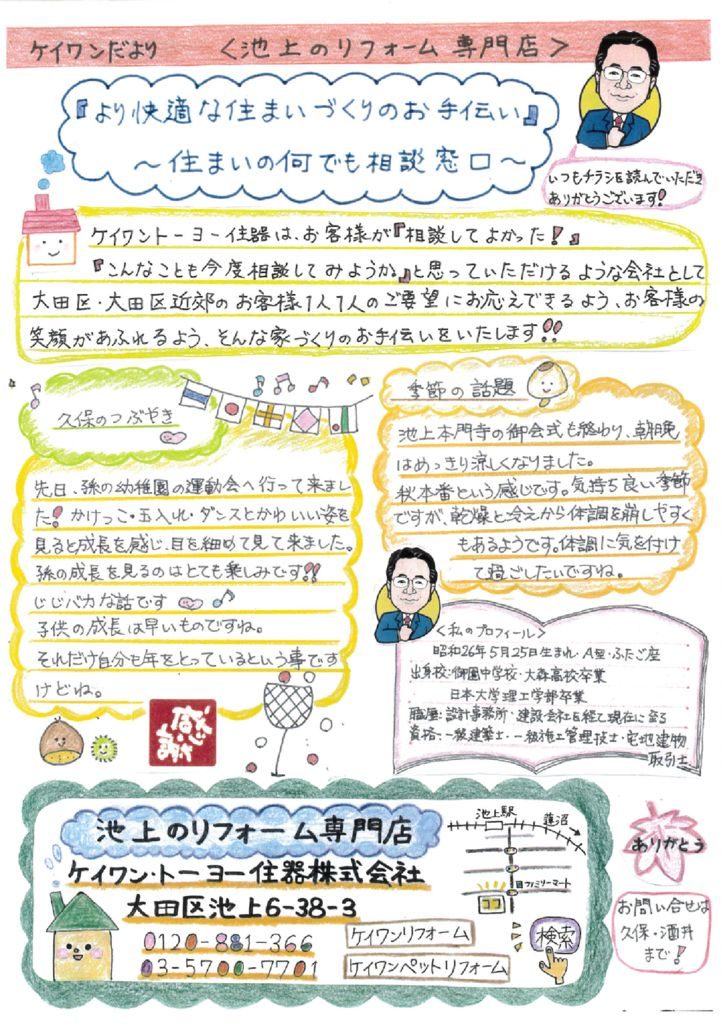 ケイワンだより 〈池上のリフォーム専門店〉
『より快適な住まいづくりのお手伝い』
～住まいの何でも相談窓口～
いつもチラシを読んでいただき
ありがとうございます!
ケイワントーヨー住器は、お客様が『相談してよかった!』
『こんなことも今度相談してみようか』と思っていただけるような会社として
大田区・大田区近郊のお客様1人1人のご要望にお応えできるよう、お客様の
笑顔があふれるよう、そんな家づくりのお手伝いをいたします!!
久保のつぶやき
先日、孫の幼稚園の運動会へ行って来まし
た! かけっこ・玉入れ・ダンスとかわいい姿を
見ると成長を感じ、目を細めて見て来ました。
孫の成長を見るのはとても楽しみです!!
じじバカな話です
子供の成長は早いものですね。
それだけ自分も年をとっているという事です
けどね。
感謝
季節の話題
池上本門寺の御会式も終わり、朝晩
はめっきり涼しくなりました。
秋本番という感じです。気持ち良い季節
ですが、乾燥と冷えから体調を崩しやすく
もあるようです。体調に気を付け
て過ごしたいですね。
〈私のプロフィール〉
昭和26年5月25日生まれ・A型・ふたご座
出身校:御園中学校・大森高校卒業
日本大学理工学部卒業
職歴:設計事務所・建設会社を経て現在に至る
資格:一級建築士・一級施工管理技士・宅地建物
取引士
池上のリフォーム専門店
ケイワン・トーヨー住器株式会社
大田区池上6-38-3
0120-881-366
03-5700-7701
ケイワンリフォーム
ケイワンペットリフォーム
検索
池上駅
蓮沼
ファミリーマート
ありがとう
お問い合せは
久保・酒井
まで!